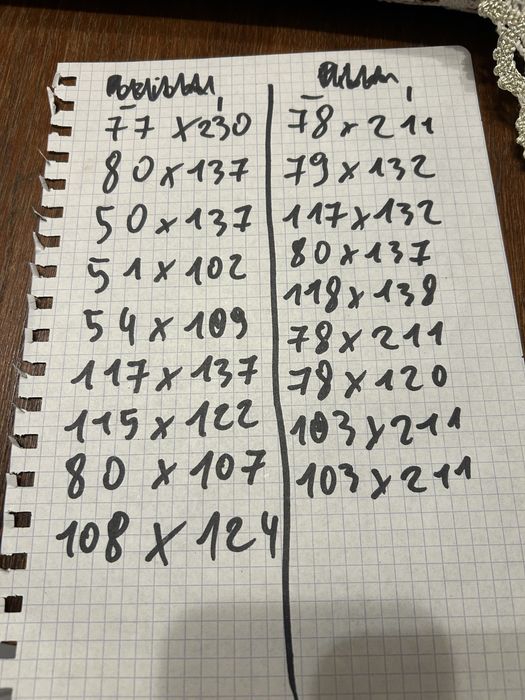 77 x 230
80 x 137
50 x 137
51 x 102
54 x 109
117 x 137
115 x 122
80 x 107
108 x 124
78 x 211
79 x 132
117 x 132
80 x 137
118 x 138
78 x 211
78 x 120
103 x 211
103 x 211